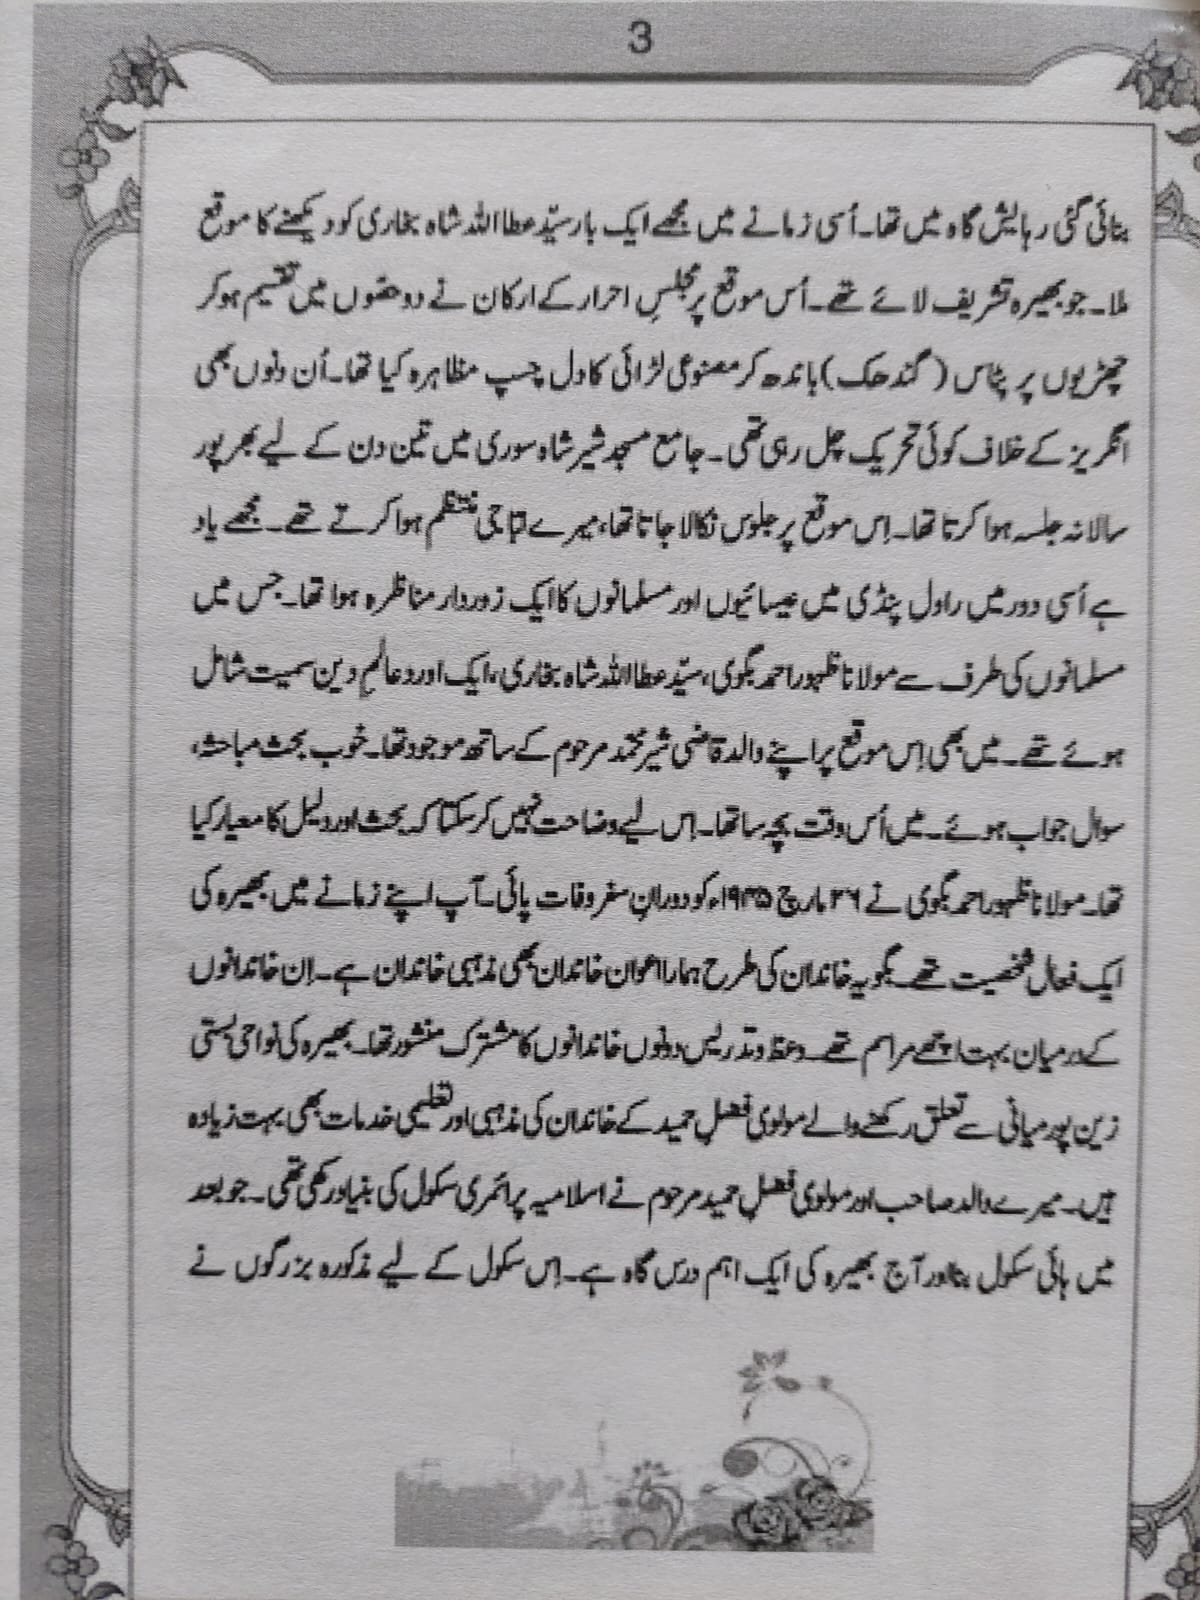 3
بنائی گئی رہایش گاہ میں تھا۔ اُسی زمانے میں مجھے ایک بار سیّد عطا اللہ شاہ بخاری کو دیکھنے کا موقع
ملا۔ جو بھیرہ تشریف لائے تھے۔ اُس موقع پر مجلسِ احرار کے ارکان نے دو حصّوں میں تقسیم ہو کر
چھڑیوں پر پٹاس (گندھک) باندھ کر مصنوعی لڑائی کا دل چسپ مظاہرہ کیا تھا۔ اُن دنوں بھی
انگریز کے خلاف کوئی تحریک چل رہی تھی۔ جامع مسجد شیر شاہ سوری میں تین دن کے لیے بھرپور
سالانہ جلسہ ہوا کرتا تھا۔ اِس موقع پر جلوس نکالا جاتا تھا، میرے ابّا جی منتظم ہوا کرتے تھے۔ مجھے یاد
ہے اُسی دور میں راول پنڈی میں عیسائیوں اور مسلمانوں کا ایک زوردار مناظرہ ہوا تھا۔ جس میں
مسلمانوں کی طرف سے مولانا ظہور احمد بگوی، سیّد عطا اللہ شاہ بخاری، ایک اور دو عالمِ دین سمیت شامل
ہوئے تھے۔ میں بھی اِس موقع پر اپنے والد قاضی شیر محمّد مرحوم کے ساتھ موجود تھا۔ خوب بحث مباحثہ،
سوال جواب ہوئے۔ میں اُس وقت بچہ سا تھا۔ اِس لیے وضاحت نہیں کر سکتا کہ بحث اور دلیل کا معیار کیا
تھا۔ مولانا ظہور احمد بگوی نے ۲۶ مارچ ۱۹۴۵ء کو دورانِ سفر وفات پائی۔ آپ اپنے زمانے میں بھیرہ کی
ایک فعال شخصیت تھے۔ بگویہ خاندان کی طرح ہمارا اعوان خاندان بھی مذہبی خاندان ہے۔ اِن خاندانوں
کے درمیان بہت اچھے مراسم تھے۔ وعظ و تدریس دونوں خاندانوں کا مشترک منشور تھا۔ بھیرہ کی نواحی بستی
زین پور میانی سے تعلق رکھنے والے مولوی فضلِ حمید کے خاندان کی مذہبی اور تعلیمی خدمات بھی بہت زیادہ
ہیں۔ میرے والد صاحب اور مولوی فضلِ حمید مرحوم نے اسلامیہ پرائمری سکول کی بنیاد رکھی تھی۔ جو بعد
میں ہائی سکول بنا اور آج بھیرہ کی ایک اہم درس گاہ ہے۔ اِس سکول کے لیے مذکورہ بزرگوں نے